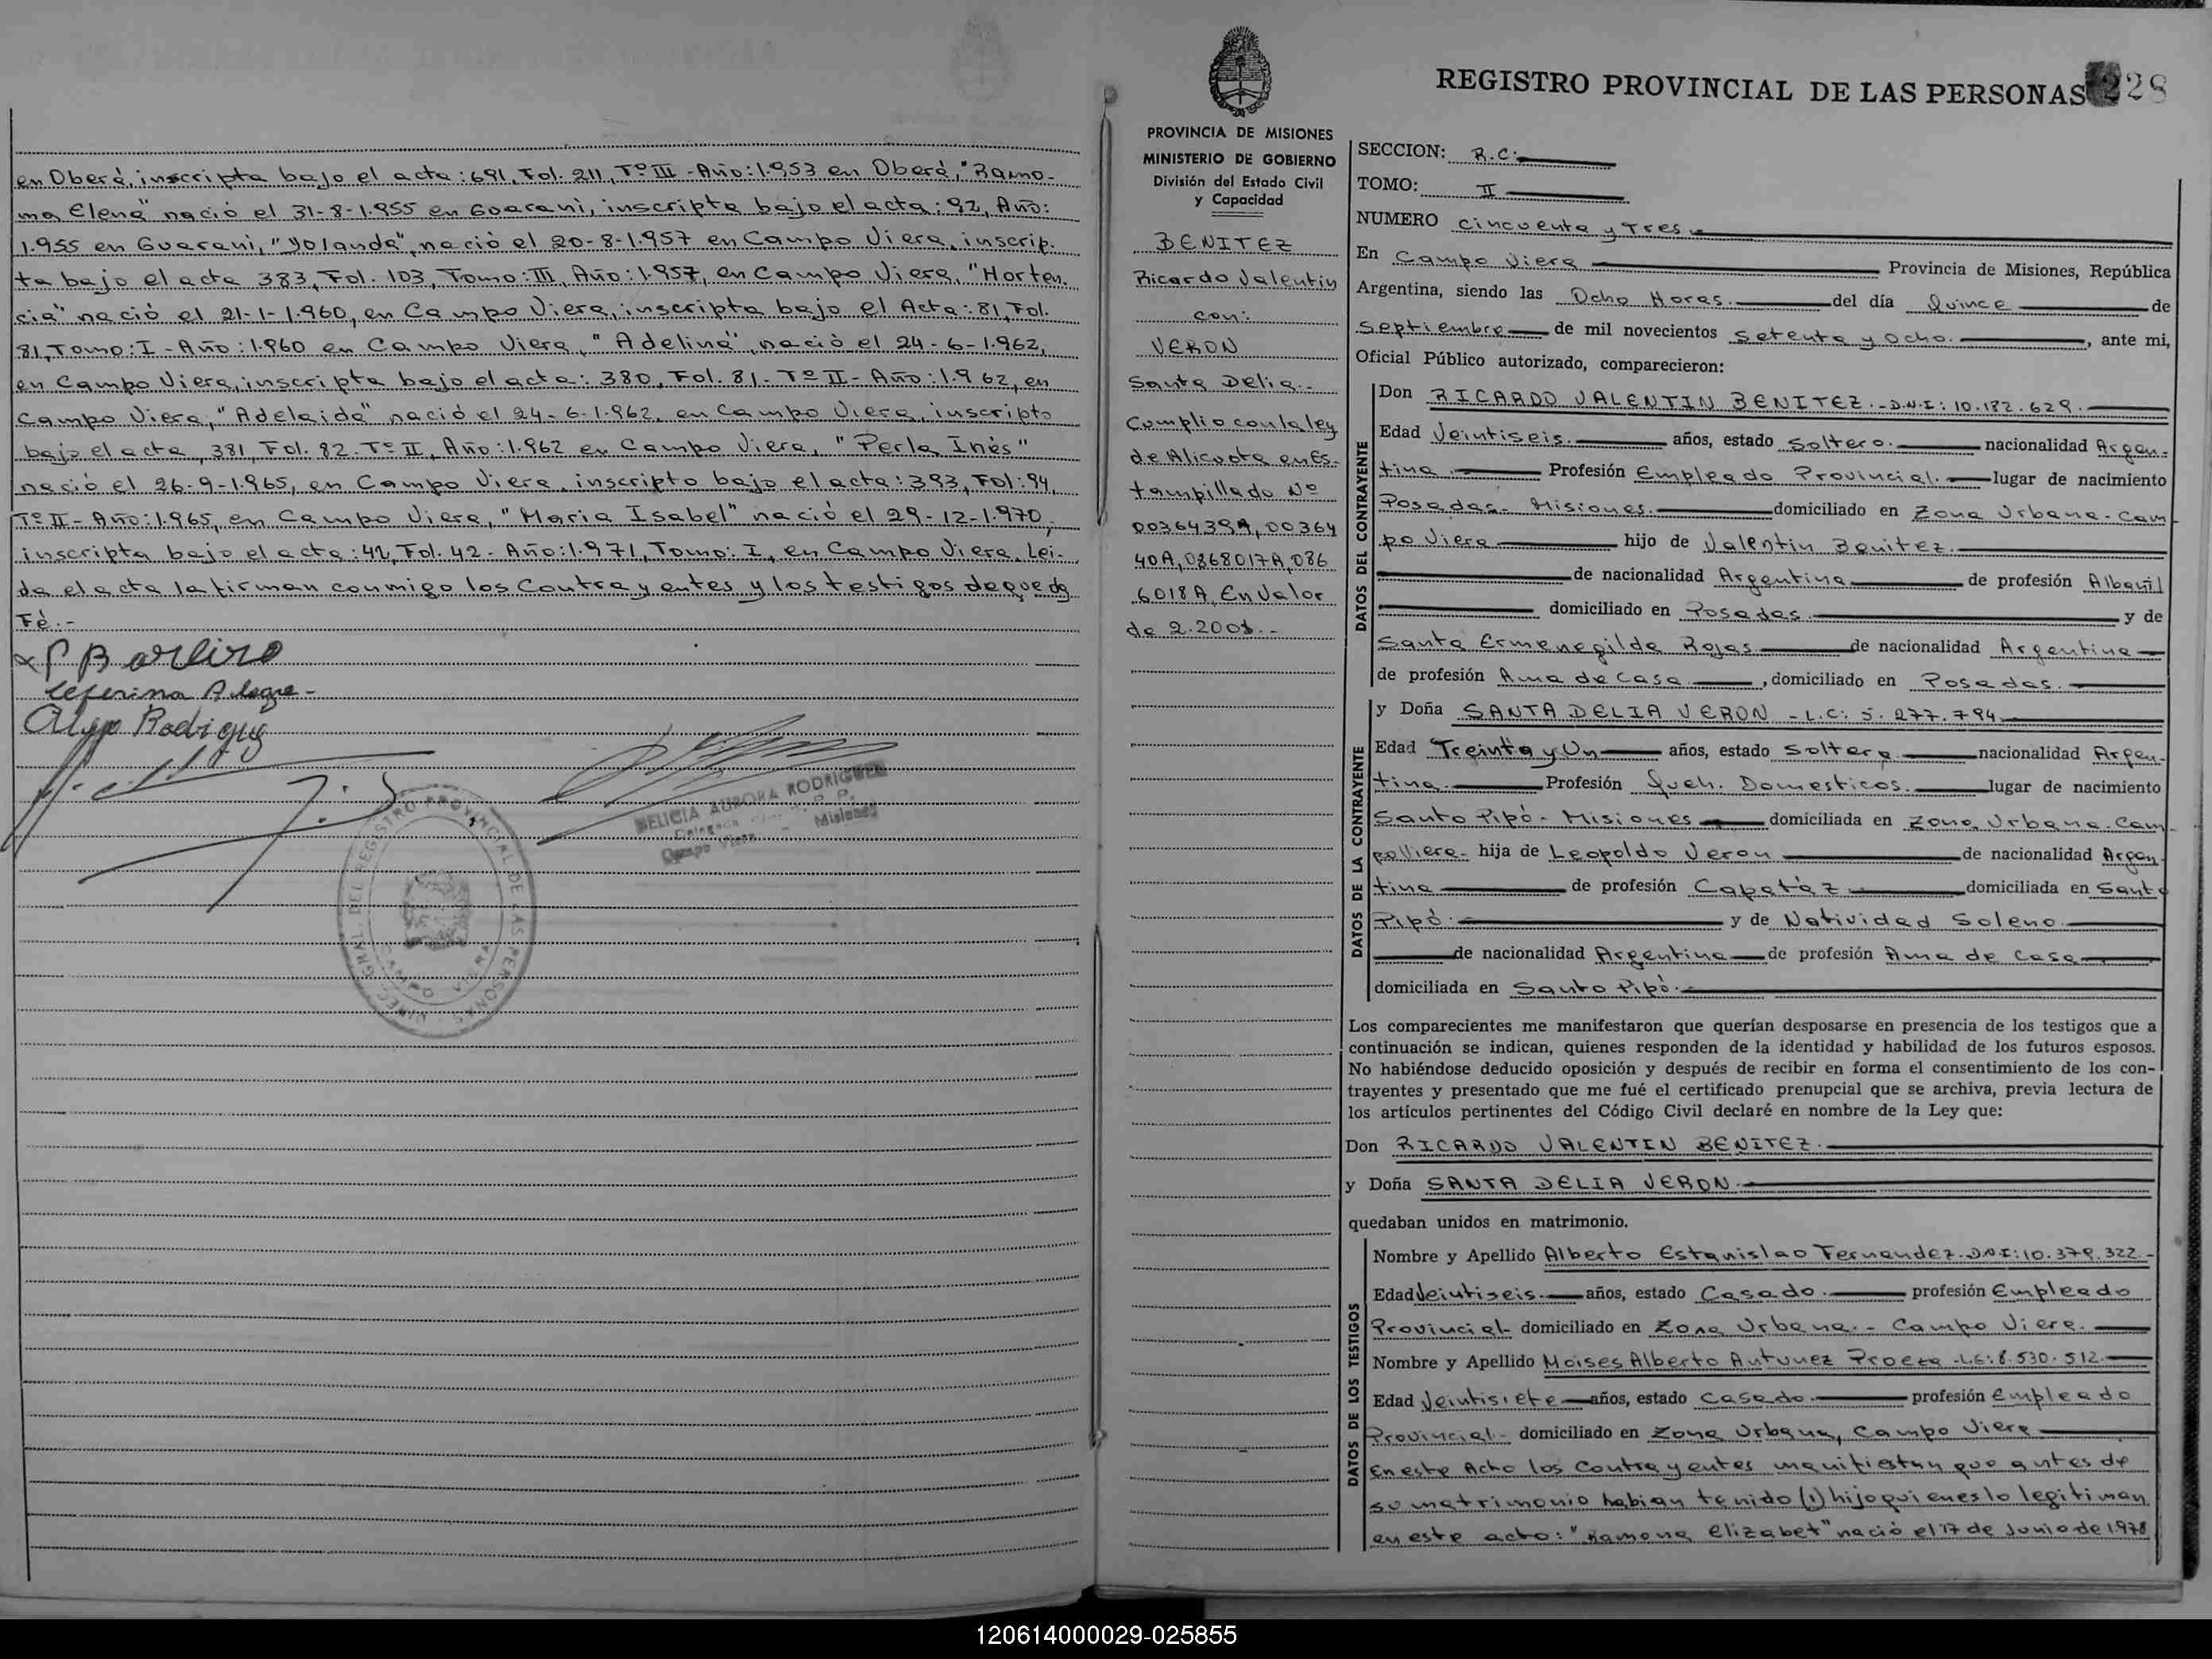 en Oberá, inscripta bajo el acta: 691, Fol. 211, Tº III - Año: 1.953 en Oberá, "Ramo-
na Elena" nació el 31-8-1.955 en Guarani, inscripta bajo el acta: 92, Año:
1.955 en Guarani, "Yolanda", nació el 20-8-1.957 en Campo Viera, inscrip-
ta bajo el acta 383, Fol. 103, Tomo: III, Año: 1.957, en Campo Viera, "Horten-
cia" nació el 21-1-1.960, en Campo Viera, inscripta bajo el Acta: 81, Fol.
81, Tomo: I - Año: 1.960 en Campo Viera, "Adelina", nació el 24-6-1.962,
en Campo Viera, inscripta bajo el acta: 380, Fol. 81. Tº II - Año: 1.962, en
Campo Viera, "Adelaida" nació el 24-6-1.962, en Campo Viera, inscripto
bajo el acta, 381, Fol. 82. Tº II, Año: 1.962 en Campo Viera, "Perla Inés"
nació el 26-9-1.965, en Campo Viera, inscripto bajo el acta: 393, Fol: 94,
Tº II - Año: 1.965, en Campo Viera, "Maria Isabel" nació el 29-12-1.970,
inscripta bajo el acta: 42, Fol. 42 - Año: 1.971, Tomo: I, en Campo Viera. Lei-
da el acta la firman conmigo los Contrayentes y los testigos de que doy
Fé.-
Ceferina Alegre -
Rodriguez
DELICIA AURORA RODRIGUEZ
Campo Viera - Misiones
DIRECC. GRAL. DEL REGISTRO PROVINCIAL DE LAS PERSONAS
CAMPO VIERA
REGISTRO PROVINCIAL DE LAS PERSONAS 228
PROVINCIA DE MISIONES
MINISTERIO DE GOBIERNO
División del Estado Civil
y Capacidad
BENITEZ
Ricardo Valentin
con:
VERON
Santa Delia.-
Cumplio con la ley
de Alicuota en Es-
tampillado Nº
0036439A, 00364
40A, 0868017A, 086
6018A, En Valor
de 2.200$.-
SECCION: R.C.
TOMO: II
NUMERO Cincuenta y Tres
En Campo Viera Provincia de Misiones, República
Argentina, siendo las Ocho Horas. del día Quince de
Septiembre de mil novecientos setenta y ocho. , ante mi,
Oficial Público autorizado, comparecieron:
DATOS DEL CONTRAYENTE
Don RICARDO VALENTIN BENITEZ.- D.N.I: 10.182.629.
Edad Veintiseis. años, estado Soltero. nacionalidad Argen-
tina. Profesión Empleado Provincial. lugar de nacimiento
Posadas - Misiones. domiciliado en Zona Urbana - Cam-
po Viera hijo de Valentin Benitez.
de nacionalidad Argentina de profesión Albañil
domiciliado en Posadas. y de
Santa Ermenegilda Rojas de nacionalidad Argentina
de profesión Ama de Casa. , domiciliado en Posadas.
DATOS DE LA CONTRAYENTE
y Doña SANTA DELIA VERON - L.C: 5.277.794.
Edad Treinta y Un años, estado Soltera nacionalidad Argen-
tina. Profesión Queh. Domesticos. lugar de nacimiento
Santo Pipó - Misiones domiciliada en Zona Urbana - Cam-
po Viera - hija de Leopoldo Veron de nacionalidad Argen-
tina de profesión Capatáz domiciliada en Santo
Pipó. y de Natividad Soleno
de nacionalidad Argentina de profesión Ama de Casa
domiciliada en Santo Pipó.
Los comparecientes me manifestaron que querían desposarse en presencia de los testigos que a
continuación se indican, quienes responden de la identidad y habilidad de los futuros esposos.
No habiéndose deducido oposición y después de recibir en forma el consentimiento de los con-
trayentes y presentado que me fué el certificado prenupcial que se archiva, previa lectura de
los artículos pertinentes del Código Civil declaré en nombre de la Ley que:
Don RICARDO VALENTIN BENITEZ.
y Doña SANTA DELIA VERON.
quedaban unidos en matrimonio.
DATOS DE LOS TESTIGOS
Nombre y Apellido Alberto Estanislao Fernandez. DNI: 10.379.322.-
Edad Veintiseis. años, estado Casado. profesión Empleado
Provincial - domiciliado en Zona Urbana.- Campo Viera.
Nombre y Apellido Moises Alberto Antunez Proeza - L.E: 8.530.512.
Edad Veintisiete años, estado Casado. profesión Empleado
Provincial - domiciliado en Zona Urbana, Campo Viera
En este Acto los Contrayentes manifiestan que antes de
su matrimonio habian tenido (1) hijo quienes lo legitiman
en este acto: "Ramona Elizabet" nació el 17 de Junio de 1.978
120614000029-025855